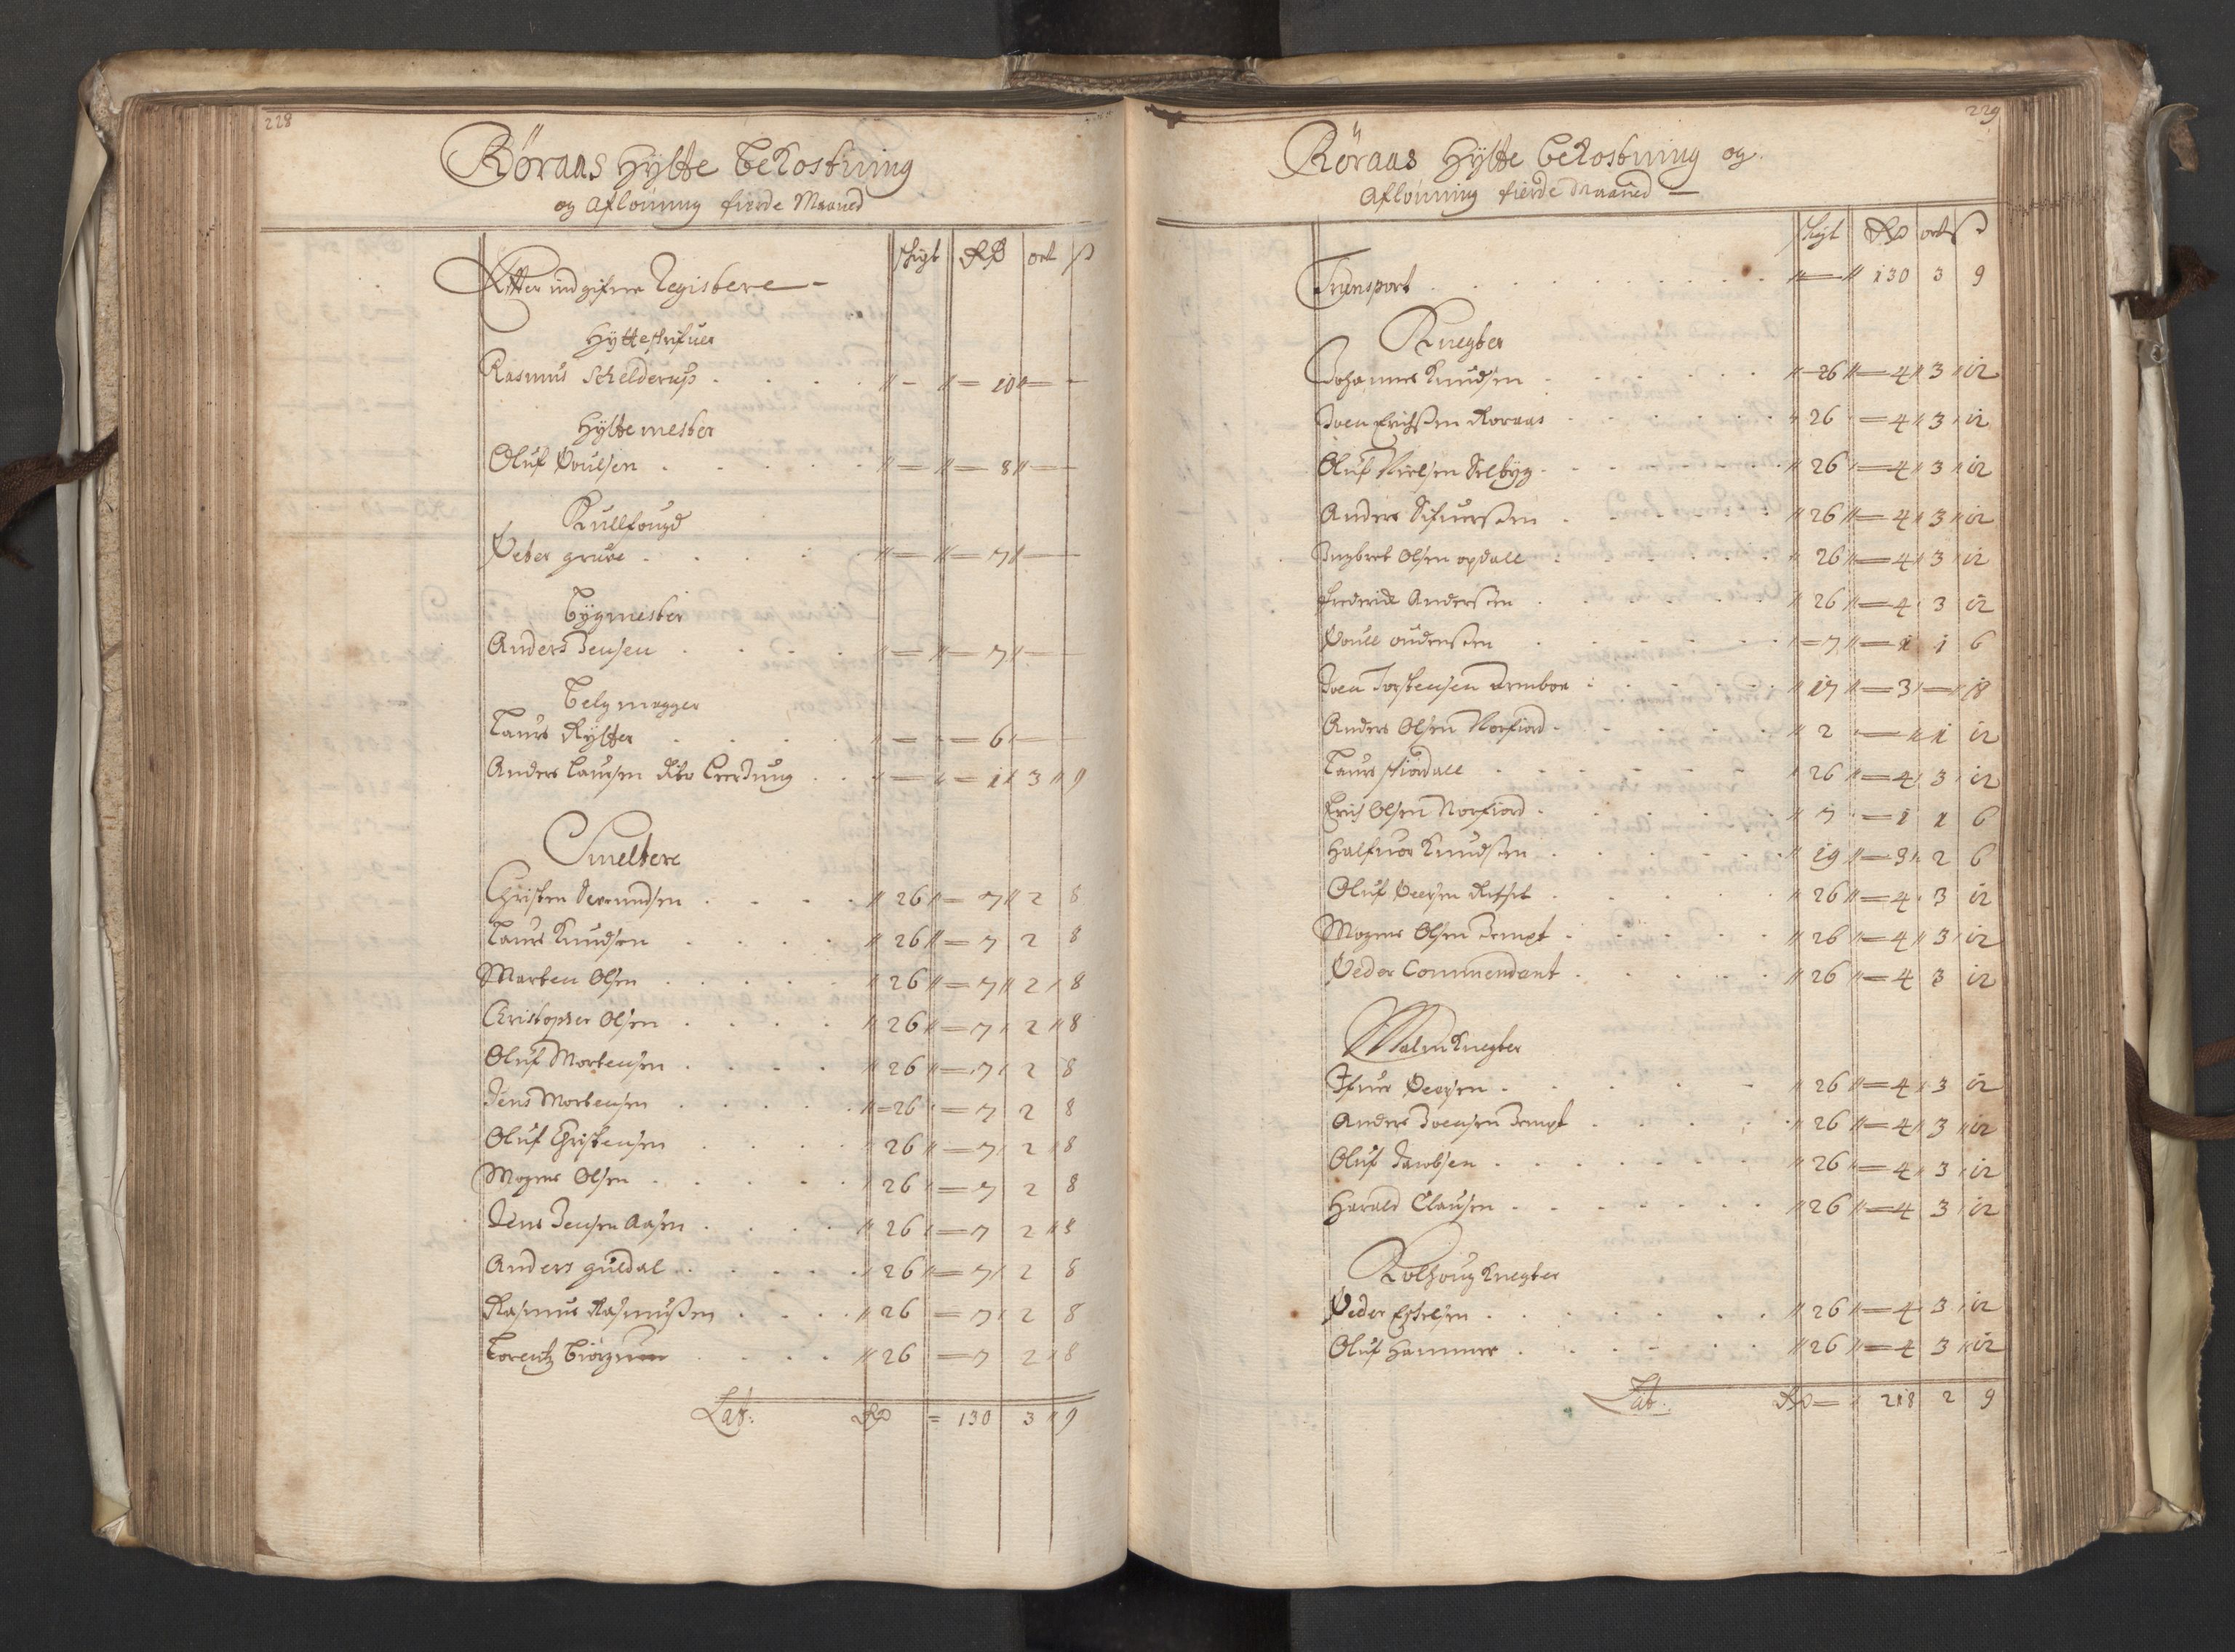 228
Röraas Hÿtte bekostning
og aflönning fierde Maaned
schigt RD ort s
Effter indgifne Registere
Hÿtteskrifuer
Rasmus Schelderup . . . . " — " — 10 " —
Hÿttemester
Oluf Poulsen . . . . . " — " — 8 " —
Kullfougd
Peter grüve . . . . . " — " — 7 " —
bÿgmester
Anders Jensen . . . . " — " — 7 " —
belgmagger
Laurs Rÿtter . . . . " — " — 6 " —
Anders Laursen . . " — " — 1 " 3 " 9
Smeltere
Christen . . . . " 26 " — 7 " 2 8
Laurs Knudsen . . . . " 26 " — 7 2 8
Morten Olsen . . . . . " 26 " — 7 " 2 " 8
Christopher Olsen . . . . " 26 " — 7 " 2 " 8
Oluf Mortensen . . . . " 26 " — 7 " 2 8
Jens Mortensen . . . . . " 26 " — 7 2 8
Oluf Christensen . . . . " 26 " — 7 " 2 " 8
Mogens Olsen . . . . . " 26 " — 7 2 8
Jens Jensen Aasen . . . . " 26 " — 7 2 " 8
Anders guldal . . . . . " 26 " — 7 " 2 8
Rasmus Rasmußen . . . . " 26 — 7 " 2 8
Lorentz . . . . " 26 — 7 2 " 8
Lat: RD = 130 3 " 9
229
Röraas Hÿtte bekostning og
aflönning fierde Maaned —
schigt RD ort s
Transport . . . . . . . . " — " 130 3 9
Knegter
Johannes Knudsen . . . . . . " 26 " — 4 " 3 " 12
Joen Erichßen Roraas . . . . . " 26 " — 4 " 3 " 12
Oluf Nielsen Selbÿg . . . . . . " 26 " — 4 " 3 " 12
Anders Sifuerßen . . . . . . " 26 " — 4 " 3 " 12
Ingbret Olsen opdall . . . . . . " 26 " — 4 " 3 " 12
frederick Anderßen . . . . . . " 26 " — 4 " 3 12
Poull oudenßen . . . . . . " 7 " — 1 1 6
Joen Torstensen . . . . . " 17 " — 3 " — " 18
Anders Olsen Norfiord . . . . . " 2 " — " 1 12
Laurs stiordall . . . . . . " 26 " — 4 " 3 " 12
Erich Olsen Norfiord . . . . . . " 7 " — 1 1 6
Halfuor Knudsen . . . . . . " 19 " — 3 " 2 6
Oluf Pedersen . . . . . " 26 " — 4 " 3 12
Mogens Olsen Jempt . . . . . " 26 " — 4 " 3 " 12
Peder Commendant . . . . . " 26 " — 4 3 12
Malm Knegter
Ifuer Pedersen . . . . . " 26 " — 4 " 3 12
Anders Joensen Jempt . . . . . " 26 " — 4 " 3 " 12
Oluf Jacobsen . . . . . . . " 26 " — 4 " 3 " 12
Harald Clausen . . . . . . . " 26 " — 4 3 " 12
Kolhoug Knegter
Peder Eskelsen . . . . . . . " 26 " — 4 3 " 12
Oluf Hammer . . . . . . " 26 " — 4 3 " 12
Lat: RD — " 218 2 9